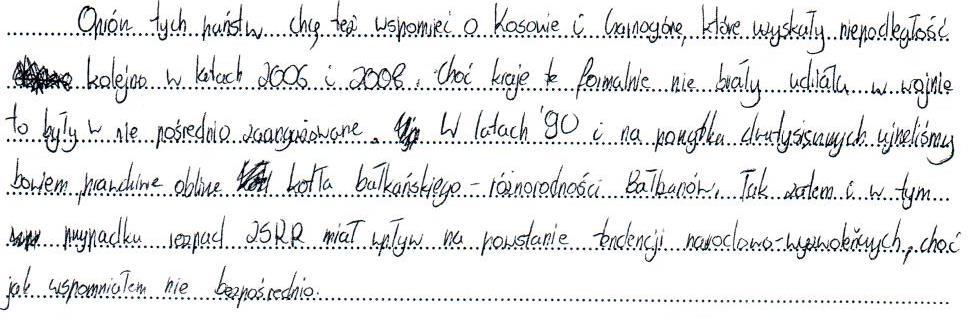 Oprócz tych państw chcę też wspomnieć o Kosowie i Czarnogórze, które wyskały niepodległość
kolejno w latach 2006 i 2008. Choć kraje te formalnie nie brały udziału w wojnie
to były w nie pośrednio zaangażowane. W latach '90 i na początku dwutysięcznych ujrzeliśmy
bowiem prawdziwe oblicze kotła bałkańskiego - różnorodności Bałkanów. Tak zatem i w tym
przypadku rozpad ZSRR miał wpływ na powstanie tendencji narodowo-wyzwoleńczych, choć
jak wspomniałem nie bezpośrednio.